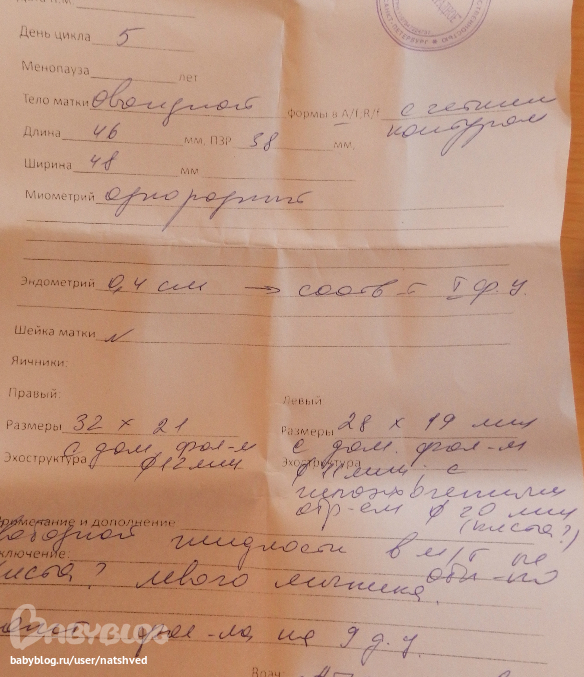 День цикла 5
Менопауза лет
Тело матки овоидной формы в A/f,R/f с четким
контуром
Длина 46 мм, ПЗР 38 мм,
Ширина 48 мм
Миометрий однородный
Эндометрий 0,4 см → соотв-т I ф.у.
Шейка матки N
Яичники:
Правый: Левый:
Размеры 32 х 21 Размеры 28 х 19 мм
Эхоструктура с дом. фол-м Эхоструктура с дом. фол-м
ф 12 мм ф 11 мм; с
гипоэхогенным
обр-ем ф 20 мм
(киста?)
Примечание и дополнение
жидкости в м/т не
обн-но
киста? левого яичника.
на 9 д.у.
Врач:
BABYBLOG
babyblog.ru/user/natshved